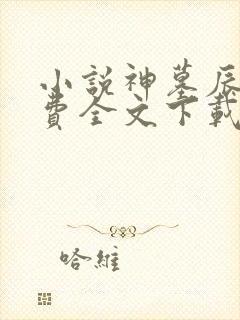 小說神墓辰
費全文下載
哈維